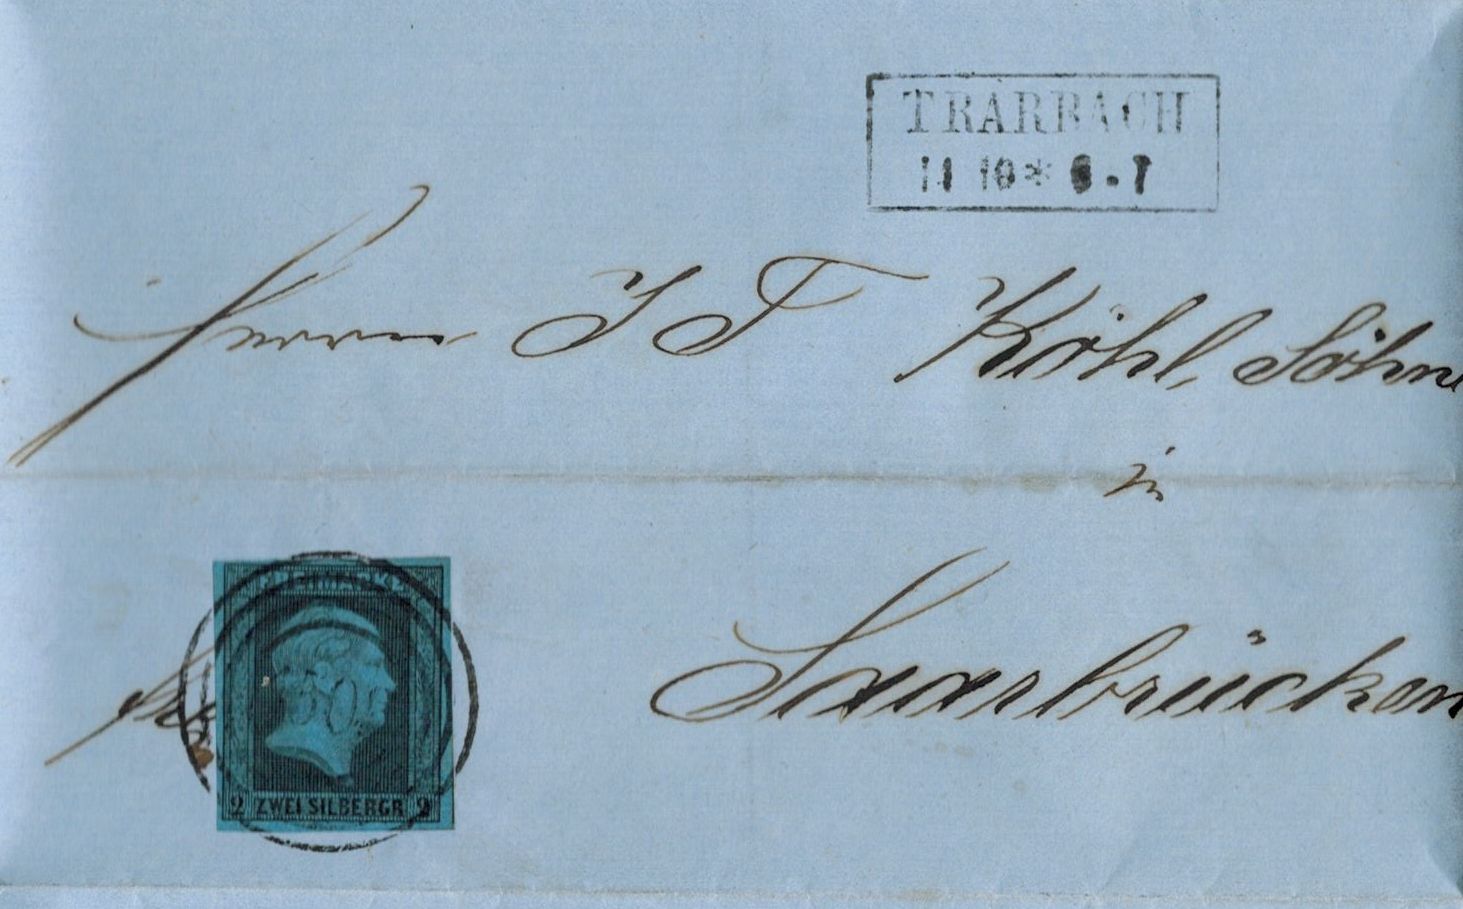 TRARBACH
11 10 * 6-7
Herrn J F Köhl, Söhne
in
Saarbrücken
FREIMARKE
2 ZWEI SILBERGR 2